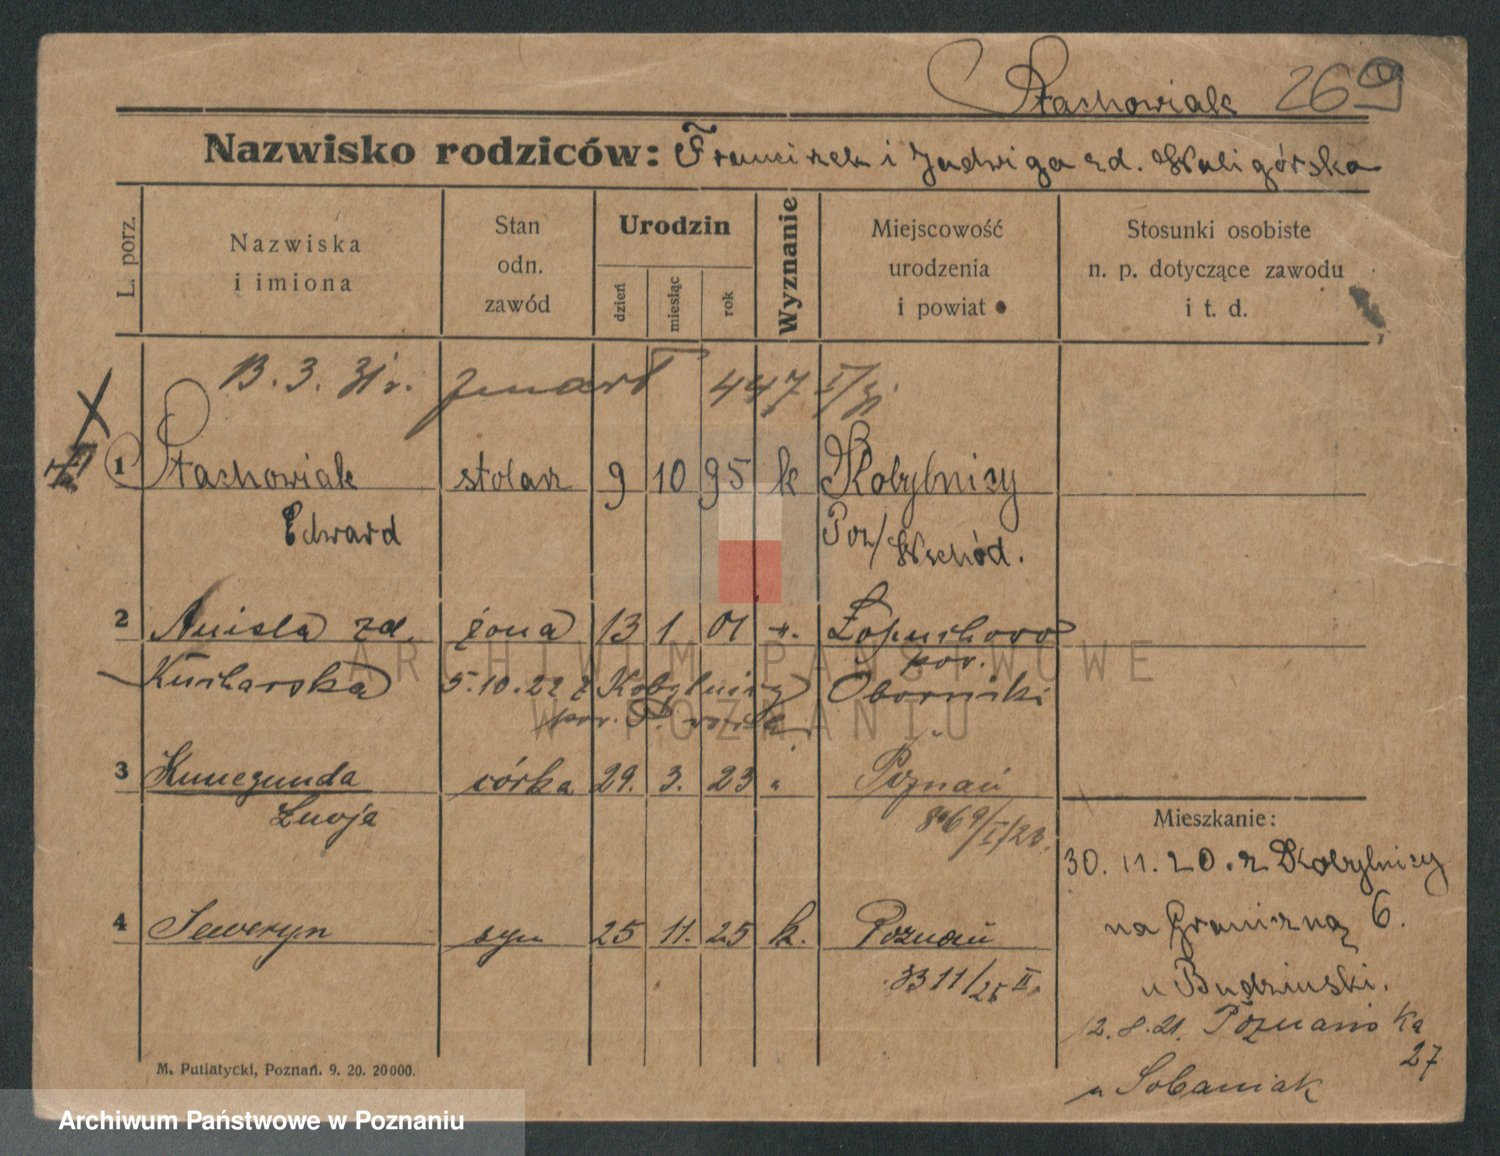 Stachowiak 269
Nazwisko rodziców: Franciszek i Jadwiga zd. Waligórska
L. porz.
Nazwiska
i imiona
Stan
odn.
zawód
Urodzin
dzień
miesiąc
rok
Wyznanie
Miejscowość
urodzenia
i powiat
Stosunki osobiste
n. p. dotyczące zawodu
i t. d.
13. 3. 31 r. zmarł 447 I/31
1 Stachowiak stolarz 9 10 95 k Kobylnicy
Edward Poz/Wschód.
2 Aniela zd. żona 13 1 01 -"- Łopuchowo
Kucharska 5.10.22 z Kobylnicy pow. Obornicki
pow. P.
3 Kunegunda córka 29. 3. 23 " Poznań
Łucja 869/I/23.
4 Seweryn syn 25 11. 25 k. Poznań
3311/25 II.
Mieszkanie:
30. 11. 20. z Kobylnicy
na Graniczną 6.
u Budziński.
12. 8. 21. Poznańska
27
u Sobaniak
M. Putiatycki, Poznań. 9. 20. 20000.
ARCHIWUM PAŃSTWOWE
W POZNANIU
Archiwum Państwowe w Poznaniu